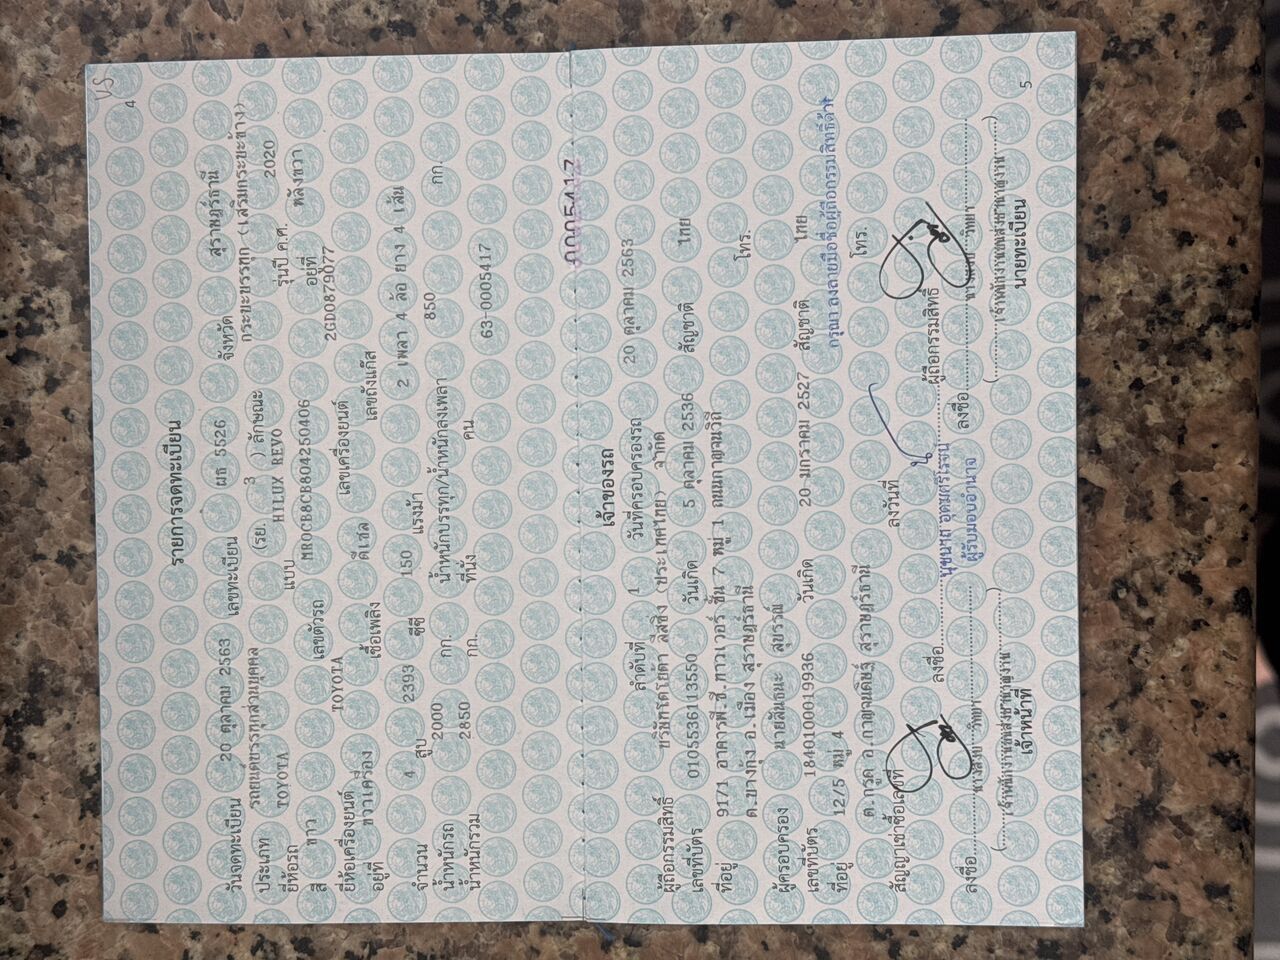 4
รายการจดทะเบียน
วันจดทะเบียน 20 ตุลาคม 2563 เลขทะเบียน ผธ 5526 จังหวัด สุราษฎร์ธานี
ประเภท รถยนต์บรรทุกส่วนบุคคล (รย. 3 ) ลักษณะ กระบะบรรทุก (เสริมกระบะข้าง)
ยี่ห้อรถ TOYOTA แบบ HILUX REVO รุ่นปี ค.ศ. 2020
สี ขาว เลขตัวรถ MR0CB8CB804250406 อยู่ที่ หลังขวา
ยี่ห้อเครื่องยนต์ TOYOTA เลขเครื่องยนต์ 2GD0879077
อยู่ที่ ขวาเครื่อง เชื้อเพลิง ดีเซล เลขถังแก๊ส
จำนวน 4 สูบ 2393 ซีซี 150 แรงม้า 2 เพลา 4 ล้อ ยาง 4 เส้น
น้ำหนักรถ 2000 กก. น้ำหนักบรรทุก/น้ำหนักลงเพลา 850 กก.
น้ำหนักรวม 2850 กก. ที่นั่ง คน 63-0005417
เจ้าของรถ
ลำดับที่ 1 วันที่ครอบครองรถ 20 ตุลาคม 2563
ผู้ถือกรรมสิทธิ์ บริษัทโตโยต้า ลีสซิ่ง (ประเทศไทย) จำกัด
เลขที่บัตร 0105536113550 วันเกิด 5 ตุลาคม 2536 สัญชาติ ไทย
ที่อยู่ 91/1 อาคารพี.ซี.ทาวเวอร์ ชั้น 7 หมู่ 1 ถนนกาญจนวิถี
ต.บางกุ้ง อ.เมือง สุราษฎร์ธานี โทร.
ผู้ครอบครอง นายสันธนะ สุบรรณ์
เลขที่บัตร 1840100019936 วันเกิด 20 มกราคม 2527 สัญชาติ ไทย
ที่อยู่ 12/5 หมู่ 4 กรุณาลงลายมือชื่อผู้ถือกรรมสิทธิ์ด้วย
ต.กรูด อ.กาญจนดิษฐ์ สุราษฎร์ธานี โทร.
สัญญาเช่าซื้อเลขที่ ลงวันที่
ลงชื่อ ผู้ถือกรรมสิทธิ์
ผู้รับมอบอำนาจ
ลงชื่อ ลงชื่อ
เจ้าหน้าที่ นายทะเบียน
5